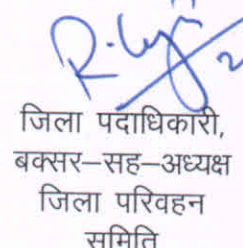 जिला पदाधिकारी,
बक्सर–सह–अध्यक्ष
जिला परिवहन
समिति